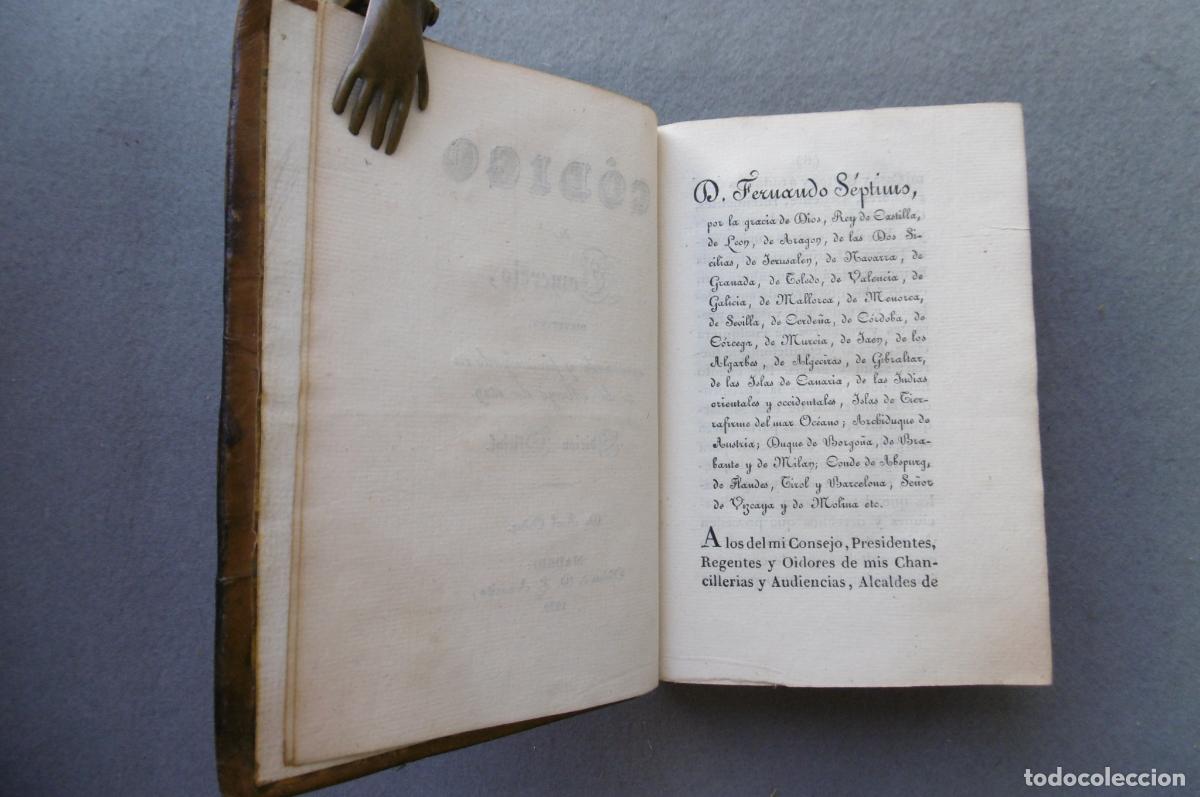 CÓDIGO
de
Comercio,
Edicion Oficial.
De Real Orden.
MADRID:
D. Fernando Séptimo,
por la gracia de Dios, Rey de Castilla,
de Leon, de Aragon, de las Dos Si-
cilias, de Jerusalen, de Navarra, de
Granada, de Toledo, de Valencia, de
Galicia, de Mallorca, de Menorca,
de Sevilla, de Cerdeña, de Córdoba, de
Córcega, de Murcia, de Jaen, de los
Algarbes, de Algeciras, de Gibraltar,
de las Islas de Canaria, de las Indias
orientales y occidentales, Islas de Tier-
rafirme del mar Océano; Archiduque de
Austria; Duque de Borgoña, de Bra-
bante y de Milan; Conde de Abspurg,
de Flandes, Tirol y Barcelona, Señor
de Vizcaya y de Molina etc.
A los del mi Consejo, Presidentes,
Regentes y Oidores de mis Chan-
cillerias y Audiencias, Alcaldes de
todocoleccion